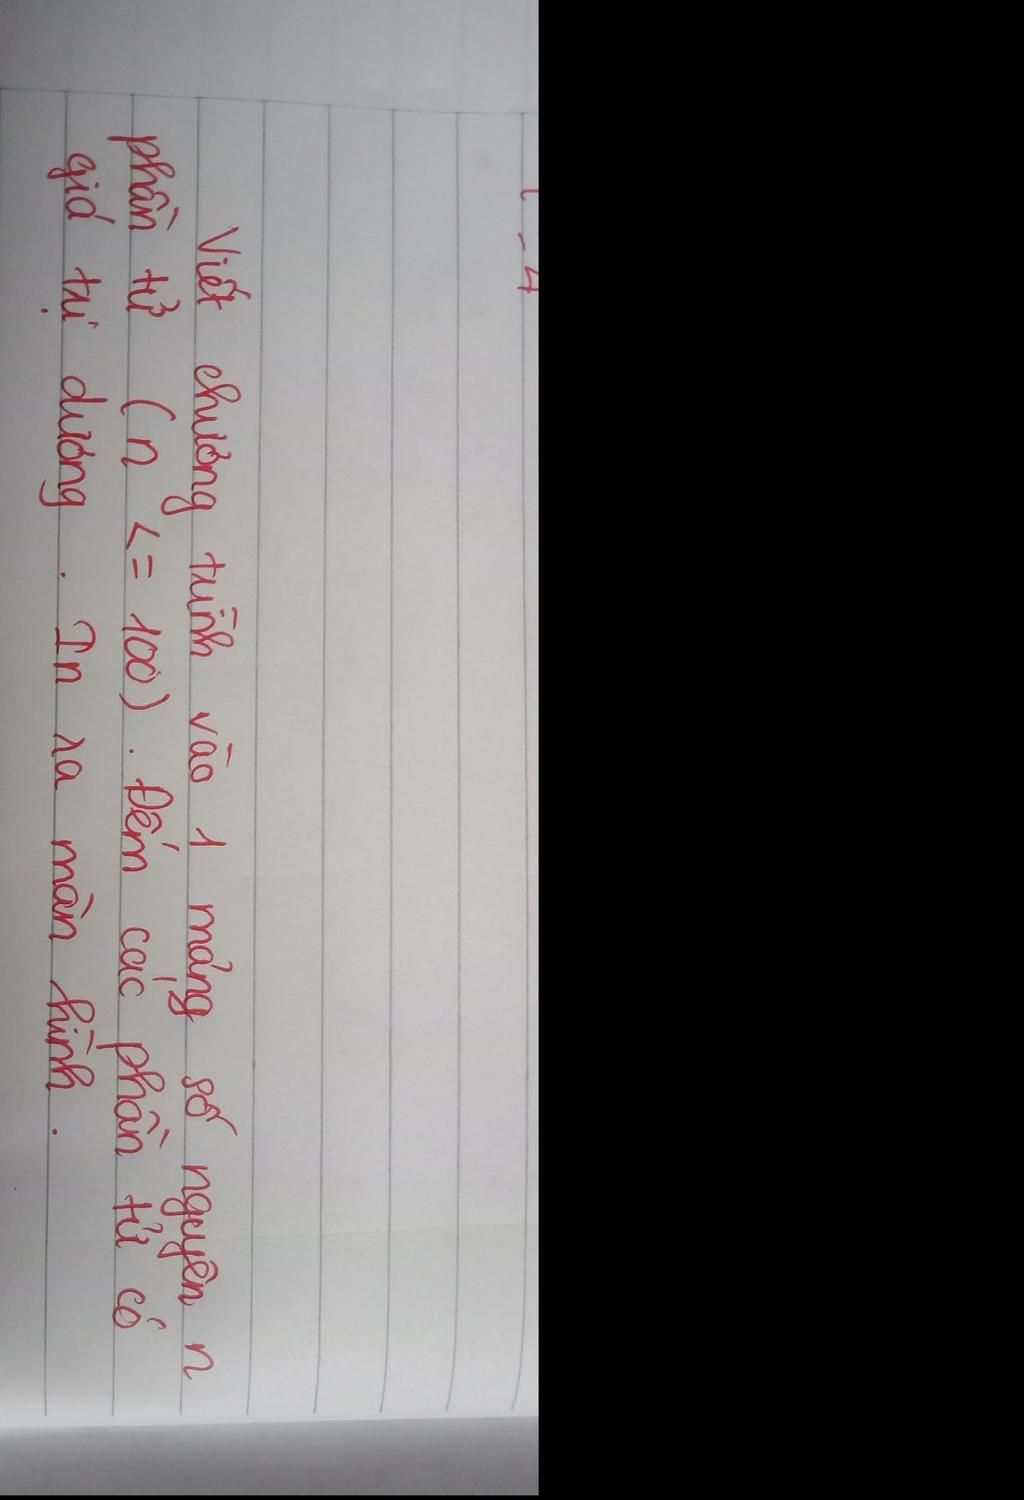 Viết chương trình vào 1 mảng số nguyên n
phần tử (n <= 100). Đếm các phần tử có
giá trị dương. In ra màn hình.